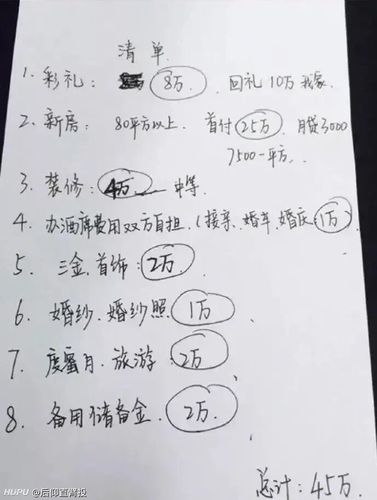 清单
1. 彩礼: 8万 回礼 10万 我家
2. 新房: 80平方以上. 首付25万. 月贷3000
7500一平方.
3. 装修: 4万 中等.
4. 办酒席费用双方自担.(接亲、婚车、婚庆.1万)
5. 三金.首饰:2万.
6. 婚纱.婚纱照.1万
7. 度蜜月.旅游:2万.
8. 备用储备金.2万.
总计:45万.
HUPU @后仰直臂投